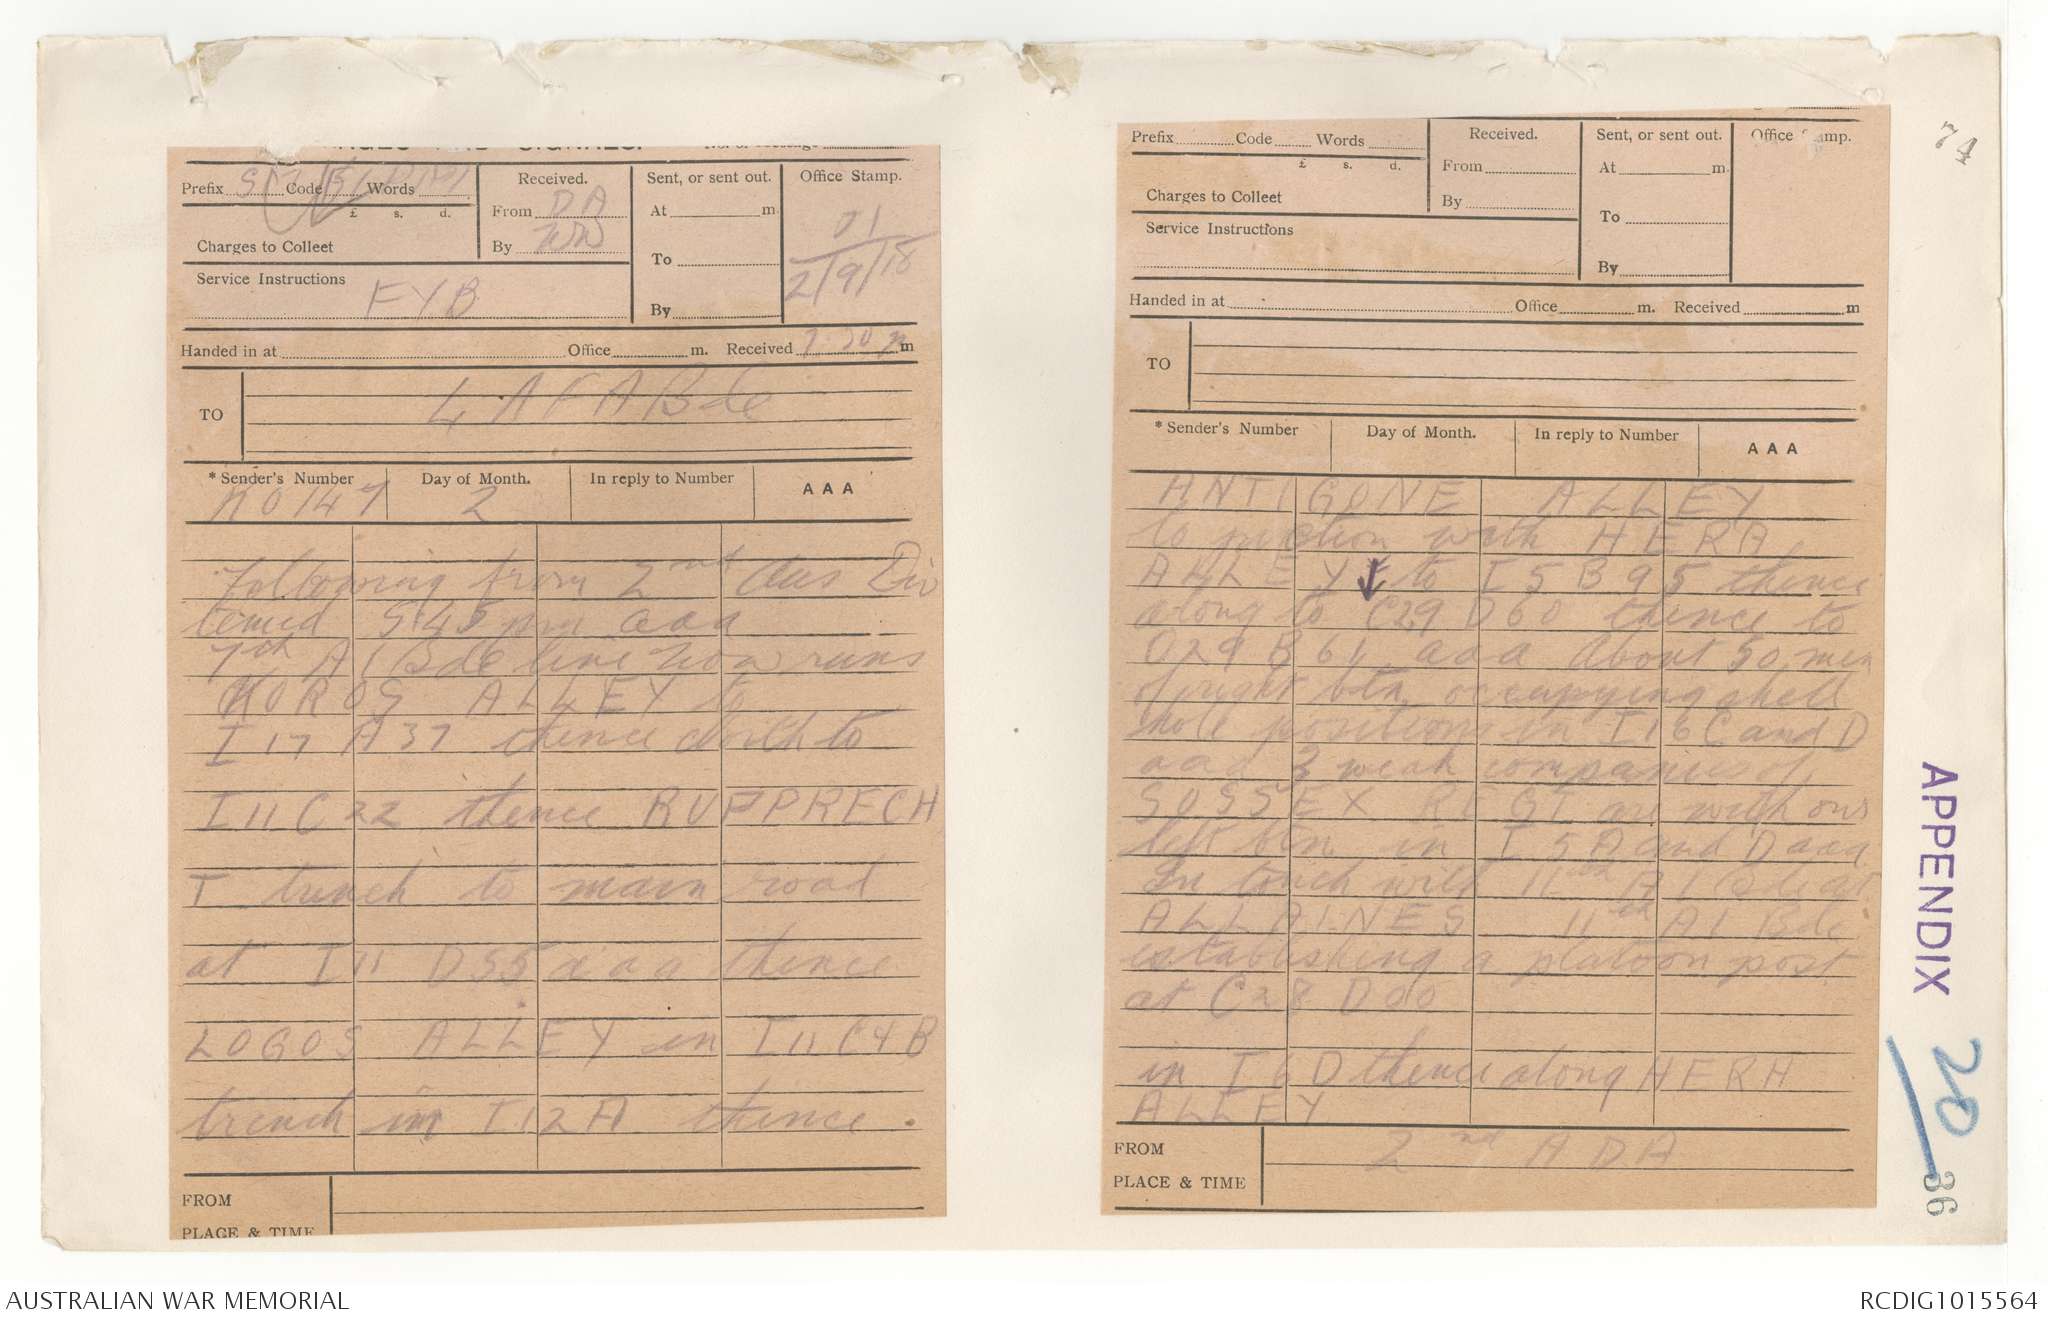 MESSAGES AND SIGNALS. No. of Message
Prefix SM Code Words
£ s. d.
Charges to Colleet
Received.
From DA
By
Sent, or sent out.
At m.
To
By
Office Stamp.
D1
2/9/18
Service Instructions
FYB
Handed in at Office m. Received 7.30 p m
TO 4 AFA Bde
* Sender's Number Day of Month. In reply to Number AAA
KO147 2
Following from 2nd Aus Div
timed 545 pm aaa
7th A I Bde line now runs
KOROS ALLEY to
I 17 A37 thence North to
I 11 C 22 thence RUPPRECH
T trench to main road
at I 11 D55 aaa thence
LOGOS ALLEY in I 11 C4B
trench in I 12 A thence.
FROM
PLACE & TIME
Prefix Code Words
£ s. d.
Charges to Colleet
Received.
From
By
Sent, or sent out.
At m.
To
By
Office Stamp.
Service Instructions
Handed in at Office m. Received m
TO
* Sender's Number Day of Month. In reply to Number AAA
ANTIGONE ALLEY
to junction with HERA
ALLEY to I 5 B 95 thence
along to C29 D60 thence to
O29 B 61 aaa About 50 men
of right btn occupying shell
hole positions in I 16 C and D
aaa 3 weak companies of
SUSSEX REGT are with our
left btn in I 5 A and D aaa
In touch with 11th A I Bde at
ALLAINES 11th AI Bde
establishing a platoon post
at C28 D00
in I 6 D thence along HERA
ALLEY
FROM 2nd ADA
PLACE & TIME
74
APPENDIX
20
36
AUSTRALIAN WAR MEMORIAL
RCDIG1015564